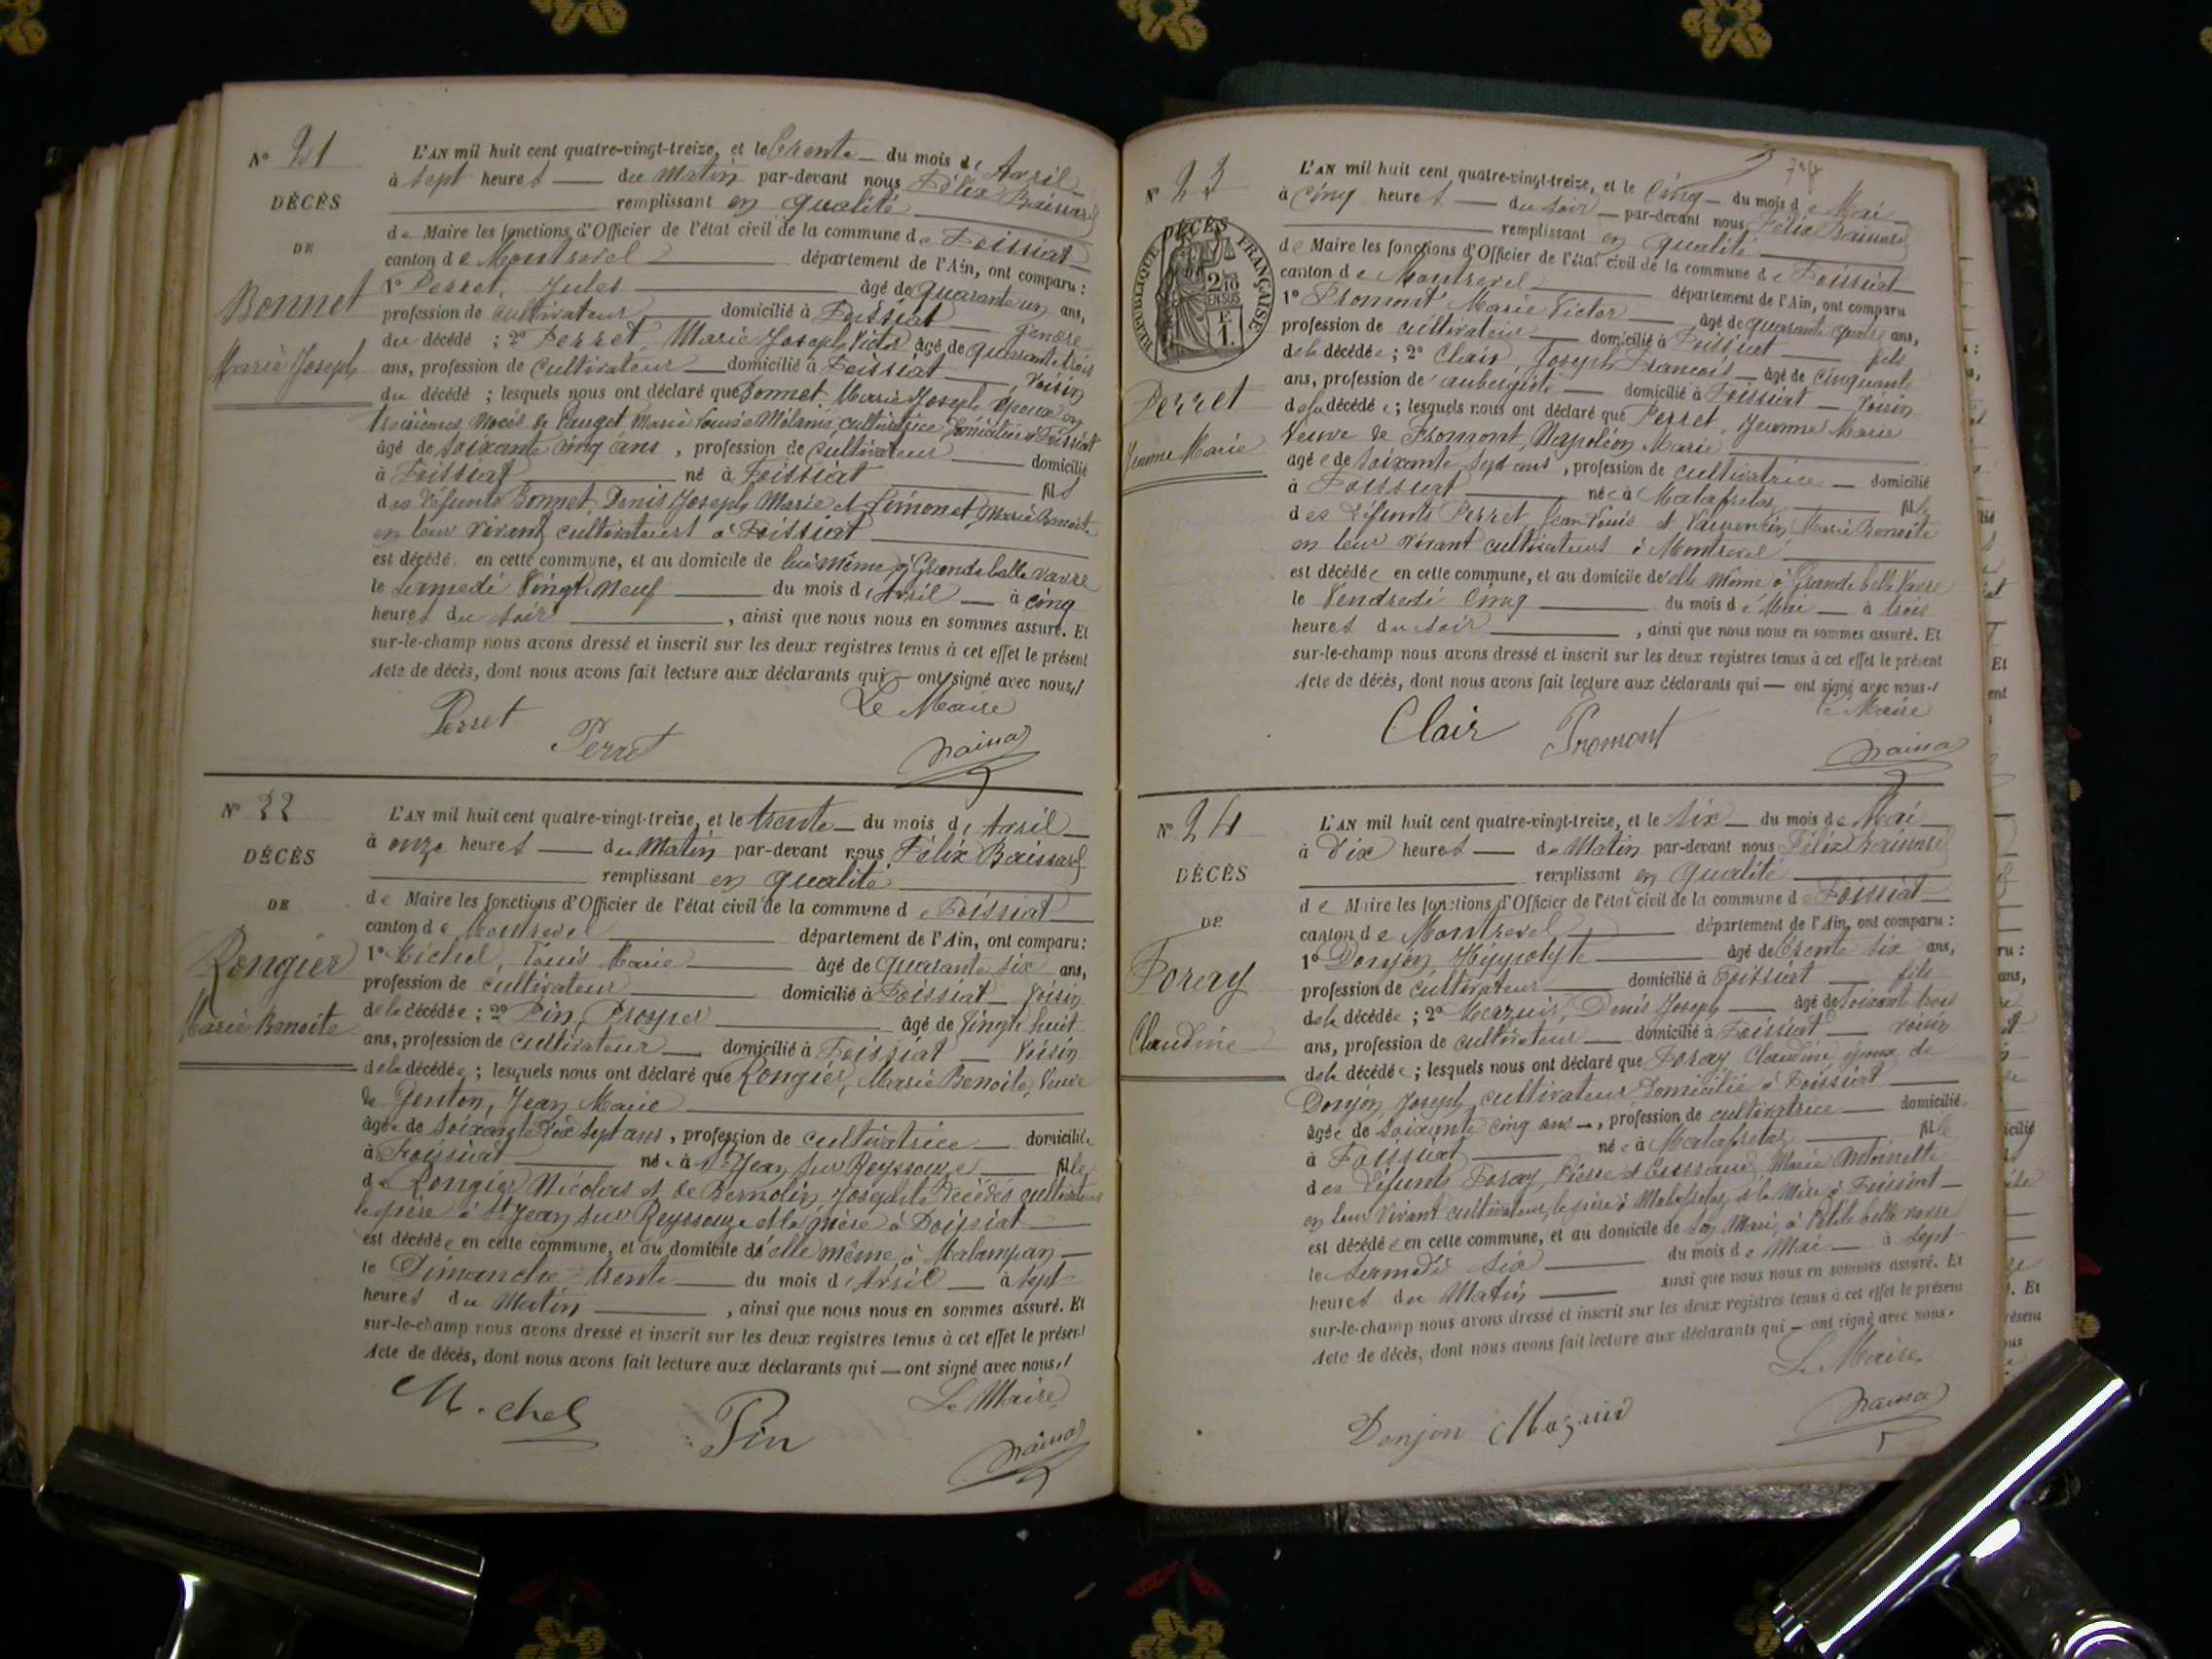 N° 21
DÉCÈS
DE
Bonnet
Marie Joseph
L'AN mil huit cent quatre-vingt-treize, et le trente du mois de Avril
à sept heures du Matin par-devant nous Félix
remplissant en qualité
de Maire les fonctions d'Officier de l'état civil de la commune de Foissiat
canton de Montrevel département de l'Ain, ont comparu :
1° Perret, Jules âgé de quarante un ans,
profession de cultivateur domicilié à Foissiat gendre
du décédé ; 2° Perret, Marie Joseph Victor âgé de quarante trois
ans, profession de cultivateur domicilié à Foissiat, voisin
du décédé ; lesquels nous ont déclaré que Bonnet Marie Joseph époux en
troisièmes noces de Pauget Marie Louise Mélanie cultivatrice domiciliée à Foissiat
âgé de soixante cinq ans, profession de cultivateur domicilié
à Foissiat né à Foissiat fils
des défunts Bonnet, Denis Joseph Marie et Limonet Marie Benoite
en leur vivant cultivateurs à Foissiat
est décédé en cette commune, et au domicile de lui même à Grande belle vavre
le samedi vingt neuf du mois d'Avril à cinq
heures du soir, ainsi que nous nous en sommes assuré. Et
sur-le-champ nous avons dressé et inscrit sur les deux registres tenus à cet effet le présent
Acte de décès, dont nous avons fait lecture aux déclarants qui ont signé avec nous
Le Maire
Perret Perret
N° 22
DÉCÈS
DE
Rongier
Marie Benoite
L'AN mil huit cent quatre-vingt-treize, et le trente du mois d'Avril
à onze heures du Matin par-devant nous Félix
remplissant en qualité
de Maire les fonctions d'Officier de l'état civil de la commune de Foissiat
canton de Montrevel département de l'Ain, ont comparu :
1° Michel, Louis Marie âgé de quarante six ans,
profession de cultivateur domicilié à Foissiat voisin
de la décédée ; 2° Pin, Prosper âgé de vingt huit
ans, profession de cultivateur domicilié à Foissiat voisin
de la décédée ; lesquels nous ont déclaré que Rongier, Marie Benoite, Veuve
de Genton, Jean Marie
âgée de soixante dix sept ans, profession de cultivatrice domiciliée
à Foissiat née à St Jean sur Reyssouze fille
de Rongier Nicolas et de Bernolin Josephte décédés cultivateurs
le père à St Jean sur Reyssouze et la mère à Foissiat
est décédée en cette commune, et au domicile d'elle même à Malampan
le Dimanche trente du mois d'Avril à sept
heures du Matin, ainsi que nous nous en sommes assuré. Et
sur-le-champ nous avons dressé et inscrit sur les deux registres tenus à cet effet le présent
Acte de décès, dont nous avons fait lecture aux déclarants qui ont signé avec nous
Le Maire
Michel Pin
N° 23
DÉCÈS
RÉPUBLIQUE FRANÇAISE
2/10 EN SUS
1 F.
Perret
Jeanne Marie
L'AN mil huit cent quatre-vingt-treize, et le cinq du mois de Mai
à cinq heures du soir par-devant nous Félix
remplissant en qualité
de Maire les fonctions d'Officier de l'état civil de la commune de Foissiat
canton de Montrevel département de l'Ain, ont comparu
1° Fromont Marie Victor âgé de quarante quatre ans,
profession de cultivateur domicilié à Foissiat fils
de la décédée ; 2° Clair, Joseph Francois âgé de cinquante
ans, profession de aubergiste domicilié à Foissiat voisin
de la décédée ; lesquels nous ont déclaré que Perret, Jeanne Marie
Veuve de Fromont, Napoléon Marie
âgée de soixante sept ans, profession de cultivatrice domicilié
à Foissiat née à Malafretaz fille
des défunts Perret Jean Louis et Marie Benoite
en leur vivant cultivateurs à Montrevel
est décédée en cette commune, et au domicile d'elle même à Grande belle Vavre
le Vendredi cinq du mois de Mai à trois
heures du soir, ainsi que nous nous en sommes assuré. Et
sur-le-champ nous avons dressé et inscrit sur les deux registres tenus à cet effet le présent
Acte de décès, dont nous avons fait lecture aux déclarants qui ont signé avec nous
Le Maire
Clair Fromont
N° 24
DÉCÈS
DE
Foray
Claudine
L'AN mil huit cent quatre-vingt-treize, et le six du mois de Mai
à dix heures du Matin par-devant nous Félix
remplissant en qualité
de Maire les fonctions d'Officier de l'état civil de la commune de Foissiat
canton de Montrevel département de l'Ain, ont comparu :
1° Donjon Hyppolyte âgé de trente six ans,
profession de cultivateur domicilié à Foissiat fils
de la décédée ; 2° Denis Joseph âgé de soixante trois
ans, profession de cultivateur domicilié à Foissiat voisin
de la décédée ; lesquels nous ont déclaré que Foray Claudine épouse de
Donjon Joseph cultivateur domicilié à Foissiat
âgée de soixante cinq ans, profession de cultivatrice domicilié
à Foissiat née à Malafretaz fille
des défunts Foray Pierre et Marie Antoinette
en leur vivant cultivateurs, le père à Malafretaz et la mère à Foissiat
est décédée en cette commune, et au domicile de son Mari, à Petite belle vavre
le samedi six du mois de Mai à sept
heures du Matin ainsi que nous nous en sommes assuré. Et
sur-le-champ nous avons dressé et inscrit sur les deux registres tenus à cet effet le présent
Acte de décès, dont nous avons fait lecture aux déclarants qui ont signé avec nous.
Le Maire
Donjon